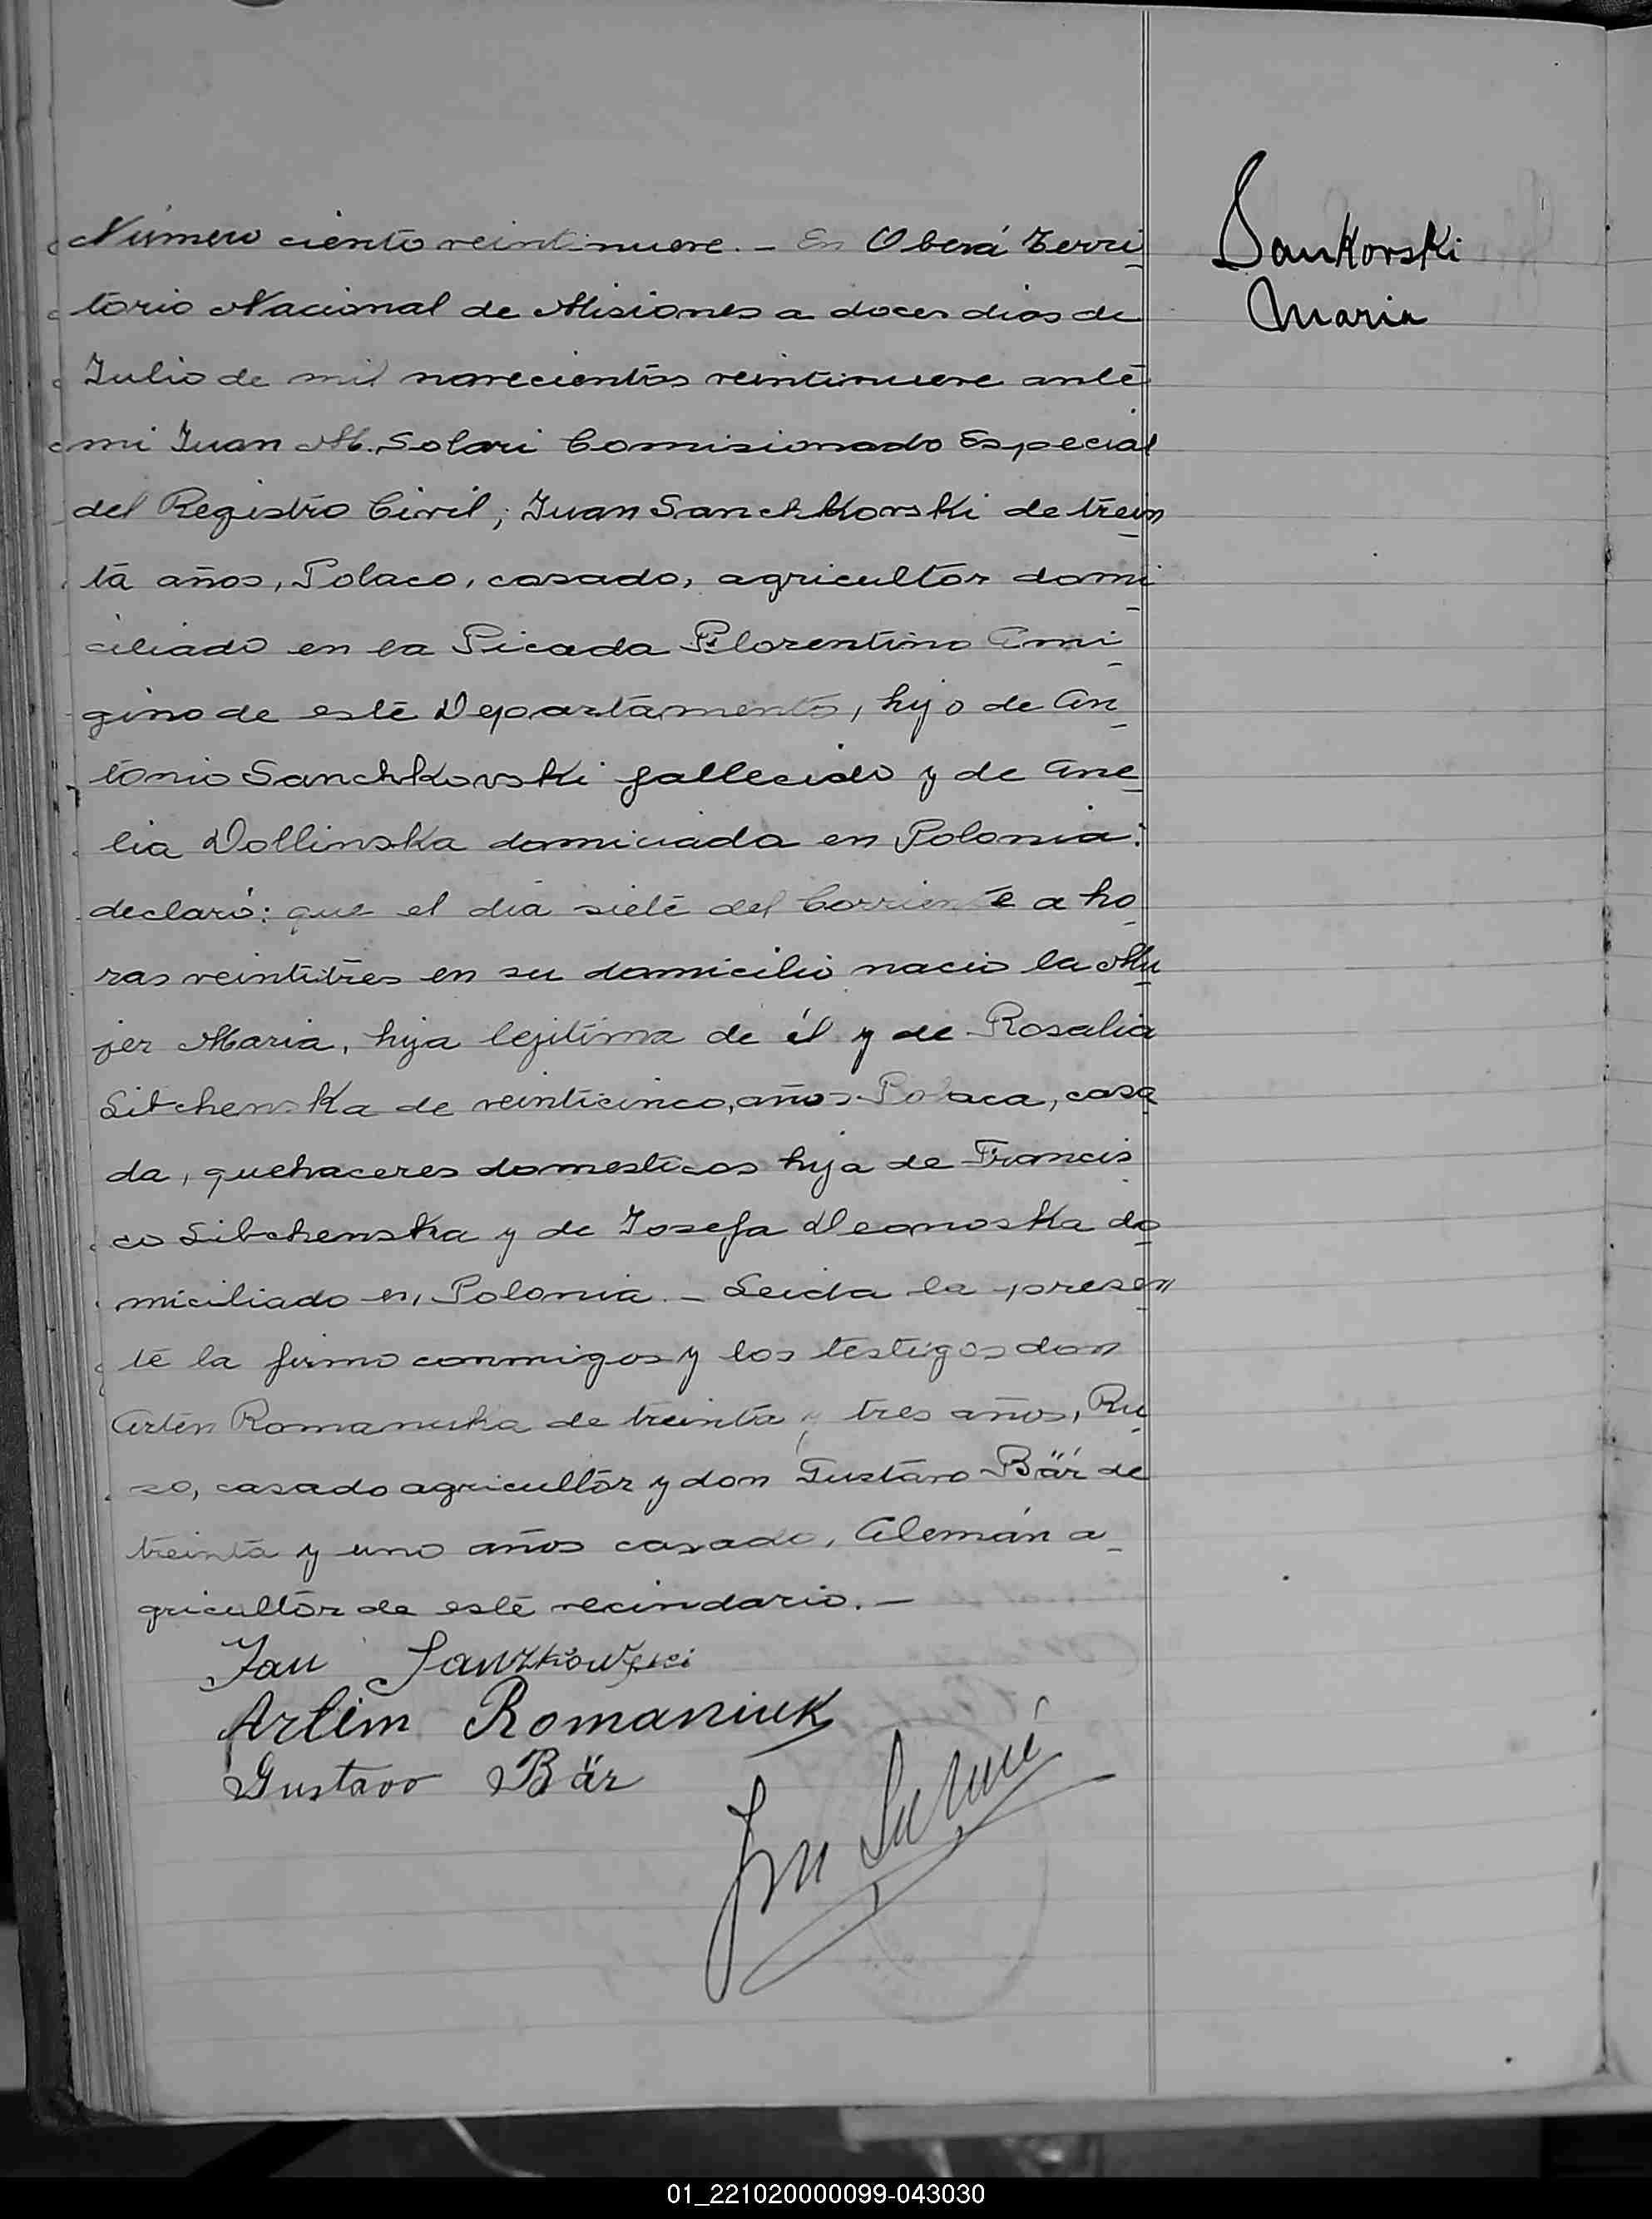 Número ciento veintinueve. - En Oberá Terri-
torio Nacional de Misiones a doces dias de
Julio de mil novecientos veintinueve ante
mi Juan M. Solari Comisionado Especial
del Registro Civil; Juan Sanchkovski de trein-
ta años, Polaco, casado, agricultor domi-
ciliado en la Picada Florentino Ami-
gino de este Departamento, hijo de An-
tonio Sanchkovski fallecido y de Ane-
lia Dollinska domiciada en Polonia:
declaró: que el dia siete del Corriente a ho-
ras veintitres en su domicilio nacio la Mu-
jer Maria, hija legitima de él y de Rosalia
Sibchenska de veinticinco, años Polaca, casa-
da, quehaceres domesticos hija de Francis-
co Sibchenska y de Josefa Deanoska do-
miciliado en, Polonia. - Leida la presen-
te la firmo conmigos y los testigos don
Arten Romanuka de treinta y tres años, Ru-
so, casado agricultor y don Gustavo Bär de
treinta y uno años casado, Alemán a-
gricultor de este vecindario. -
Jan Sanzkowski
Artim Romaniuk
Gustavo Bär
Sankovski
Maria
01_221020000099-043030